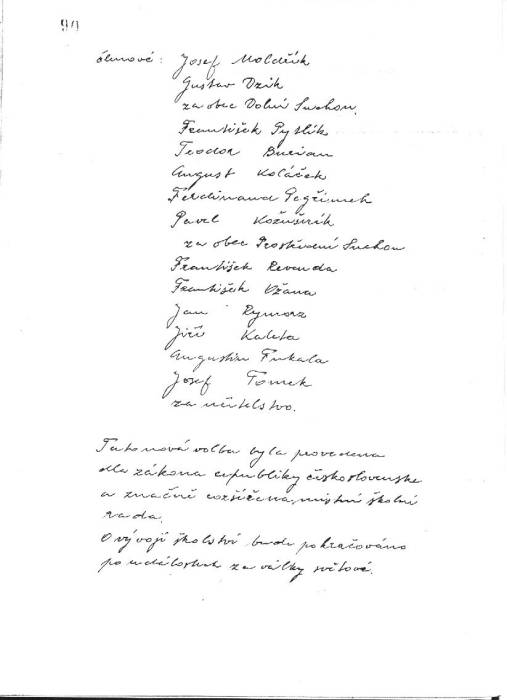 90
členové: Josef Moldřík
Gustav Dzik
za obec Dolní Suchou.
František Pytlík
Teodor Burian
August Koláček
Ferdinand
Pavel Kožušník
za obec Prostřední Suchou
František Revenda
František Vžana
Jan Rymorz
Jiří Kaleta
Augustin Fukala
Josef Tomek
za učitelstvo.
Tato nová volba byla provedena
dle zákona republiky československé
a značně rozšířena, místní školní
rada.
O vývoji školství bude pokračováno
po událostech za války světové.